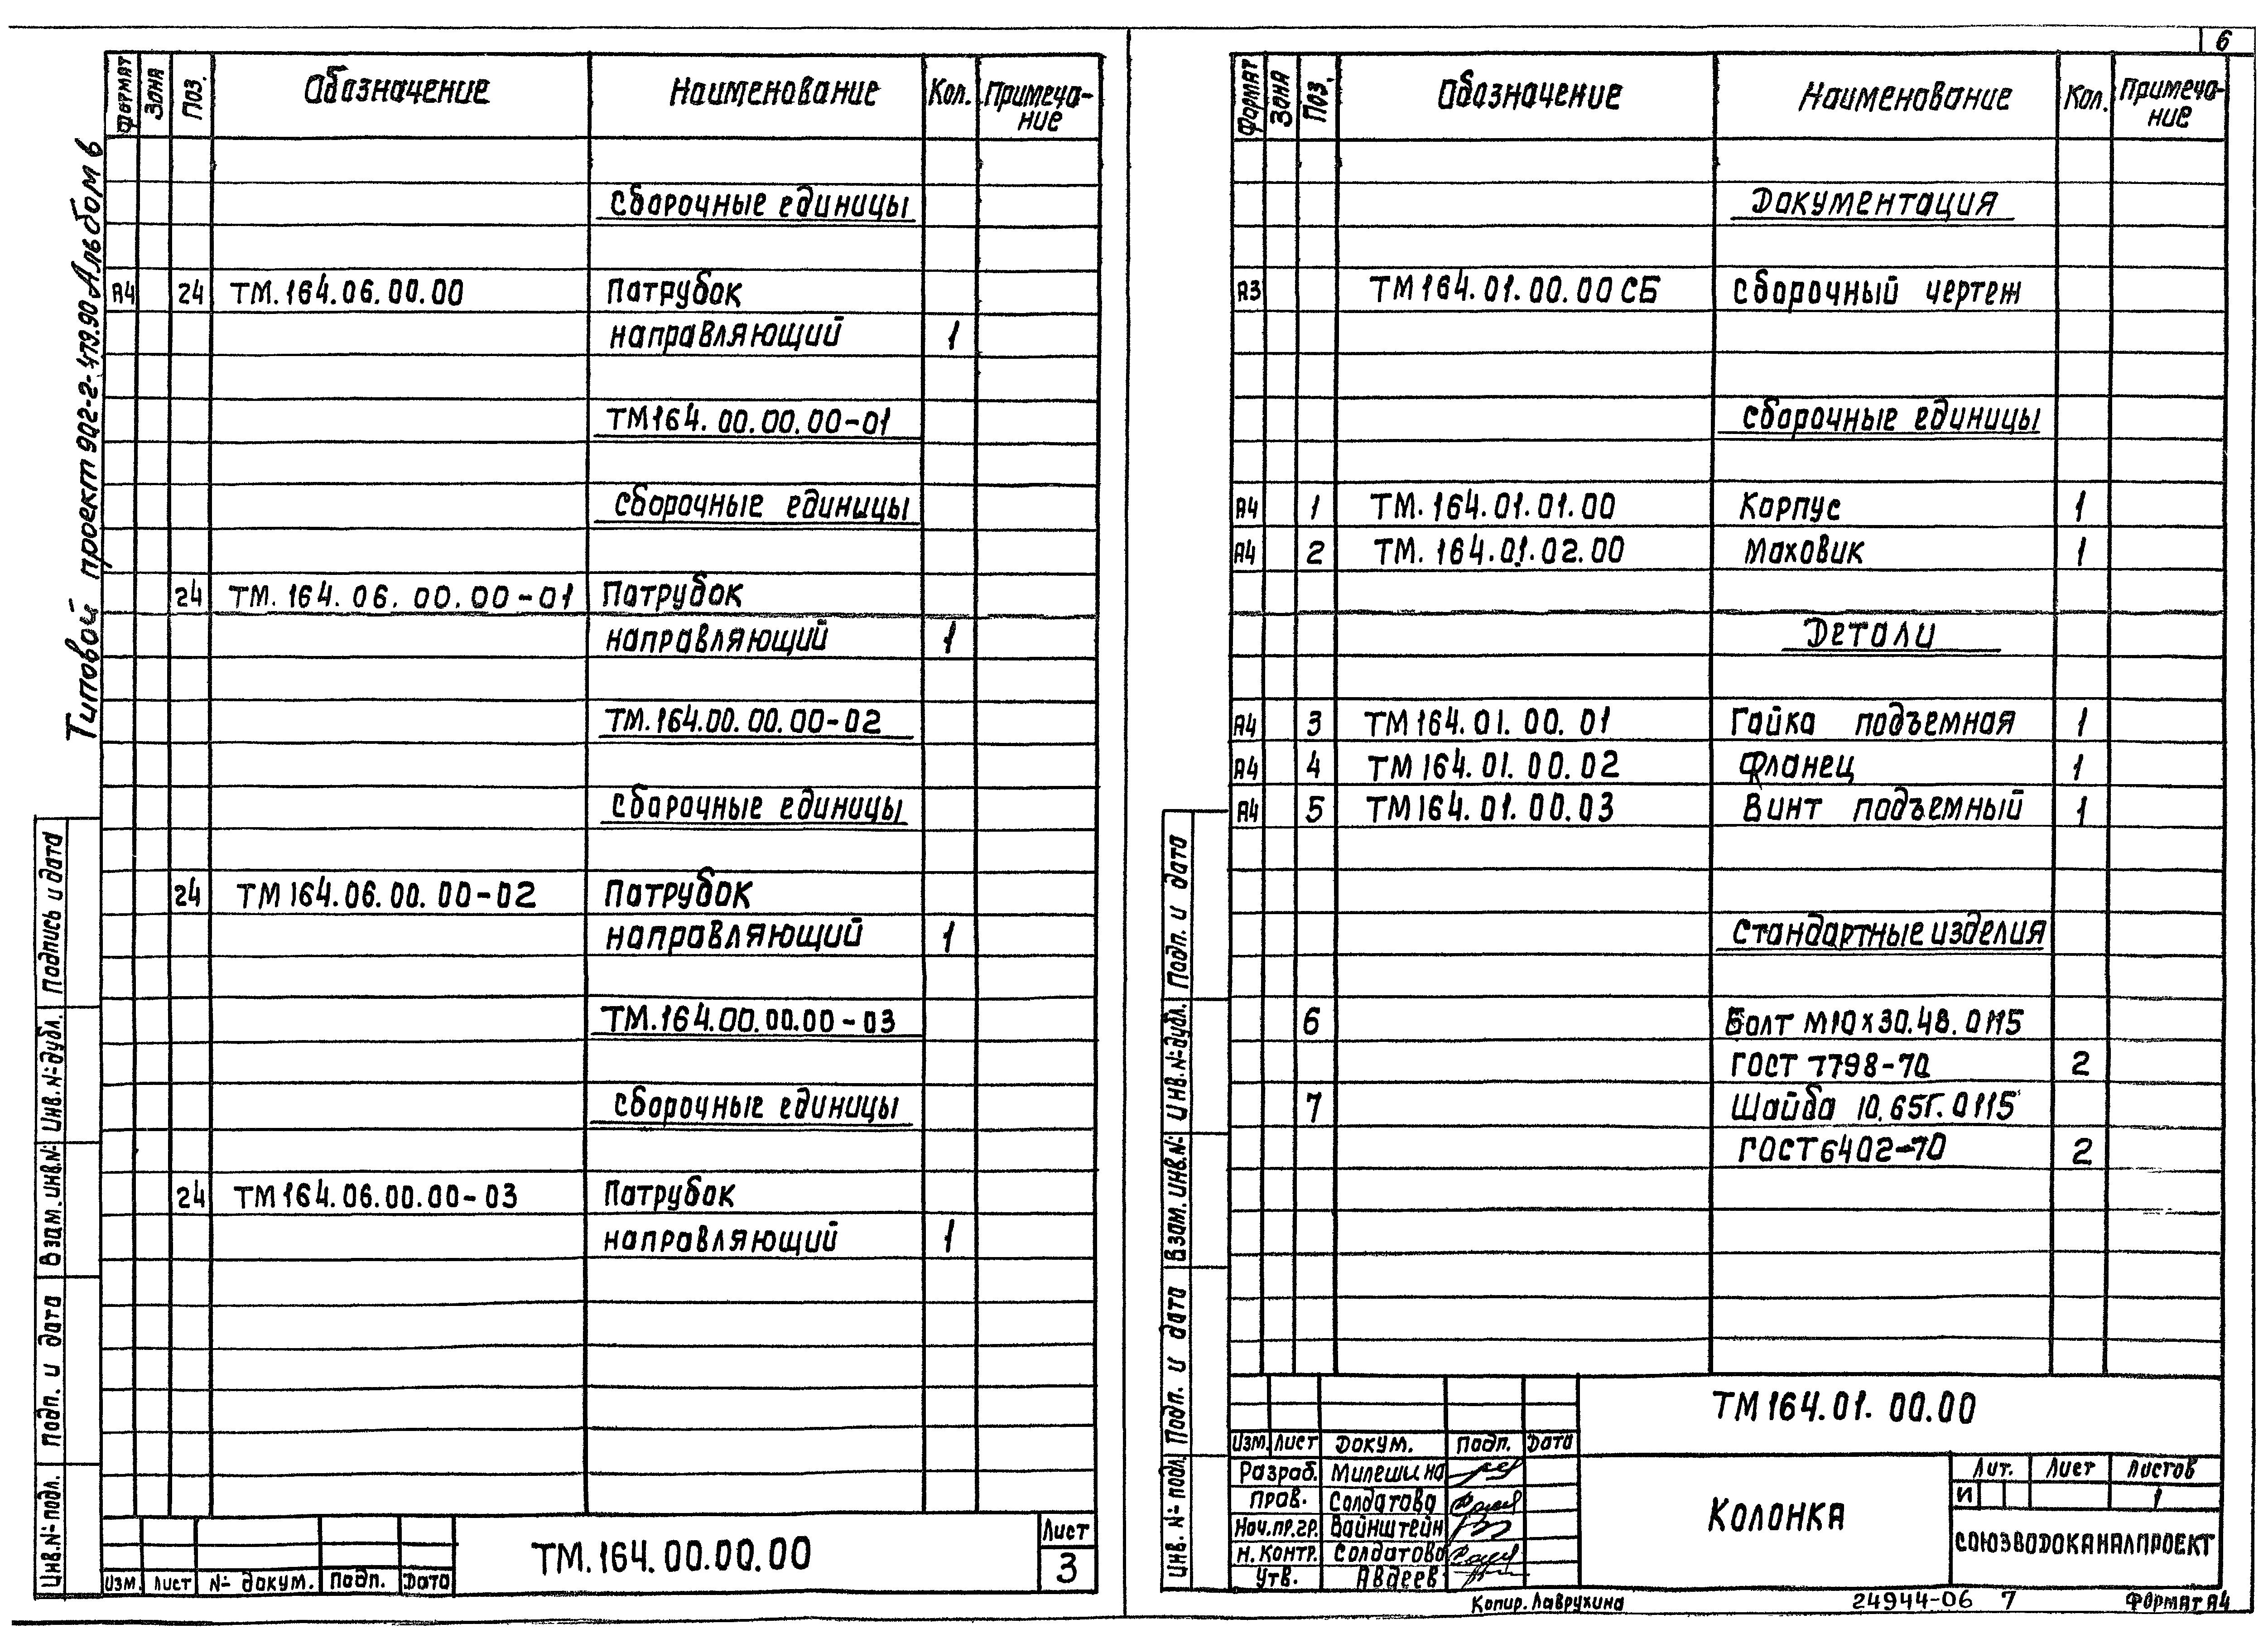 6
Типовой проект 902-2-479.90 Альбом 6
Формат Зона Поз. Обозначение Наименование Кол. Примеча-
ние
Сборочные единицы
А4 24 ТМ.164.06.00.00 Патрубок
направляющий 1
ТМ164.00.00.00-01
Сборочные единицы
24 ТМ.164.06.00.00-01 Патрубок
направляющий 1
ТМ.164.00.00.00-02
Сборочные единицы
24 ТМ164.06.00.00-02 Патрубок
направляющий 1
ТМ.164.00.00.00-03
Сборочные единицы
24 ТМ164.06.00.00-03 Патрубок
направляющий 1
Подпись и дата
Инв.№дубл.
Взам.инв.№
Подп. и дата
Инв.№подл.
Изм. Лист № докум. Подп. Дата
ТМ.164.00.00.00
Лист
3
Формат Зона Поз. Обозначение Наименование Кол. Примеча-
ние
Документация
А3 ТМ164.01.00.00СБ Сборочный чертеж
Сборочные единицы
А4 1 ТМ.164.01.01.00 Корпус 1
А4 2 ТМ.164.01.02.00 Маховик 1
Детали
А4 3 ТМ164.01.00.01 Гайка подъемная 1
А4 4 ТМ164.01.00.02 Фланец 1
А4 5 ТМ164.01.00.03 Винт подъемный 1
Стандартные изделия
6 Болт М10х30.48.0115
ГОСТ 7798-70 2
7 Шайба 10.65Г.0115
ГОСТ6402-70 2
Подп. и дата
Инв.№дубл.
Взам.инв.№
Подп. и дата
Инв.№подл.
ТМ164.01.00.00
Изм. Лист Докум. Подп. Дата
Разраб. Милешина
Пров. Солдатова
Нач.пр.гр. Вайнштейн
Н.контр. Солдатова
Утв. Авдеев
КОЛОНКА
Лит. Лист Листов
И 1
СОЮЗВОДОКАНАЛПРОЕКТ
Копир. Лаврухина 24944-06 7 Формат А4